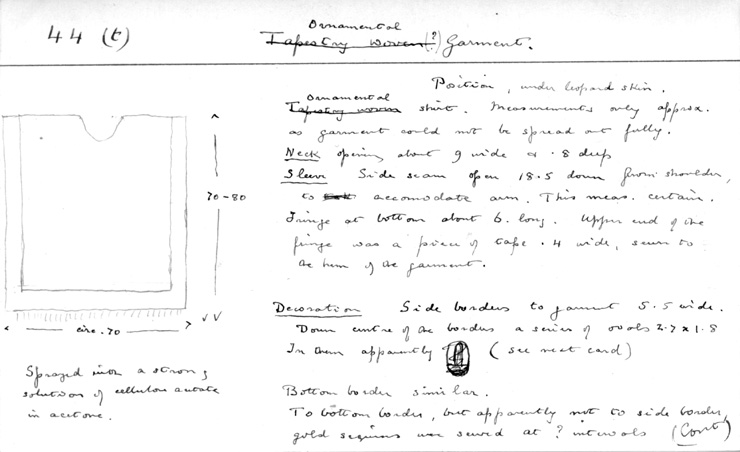 44 (t)
Ornamental
Tapestry woven (?) Garment.
Position, under leopard skin.
Ornamental
Tapestry woven shirt. Measurements only approx.
as garment could not be spread out fully.
Neck opening about 9 wide & .8 deep
Sleeve Side seam open 18.5 down from shoulder,
to accomodate arm. This meas. certain.
Fringe at bottom about 6. long. Upper end of the
fringe was a piece of tape .4 wide, sewn to
the hem of the garment.
70-80
circ. 70
Sprayed with a strong
solution of cellulose acetate
in acetone.
Decoration Side borders to garment 5.5 wide.
Down centre of the borders a series of ovals 2.7 x 1.8
In them apparently (see next card)
Bottom border similar.
To bottom border, but apparently not to side border,
gold sequins were sewed at ? intervals (Cont)